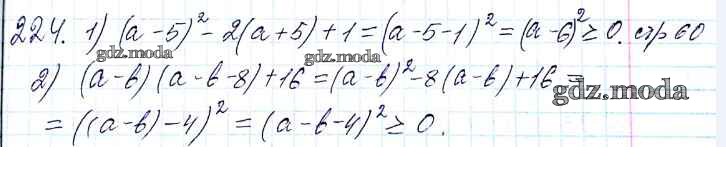 224. 1) (a-5)² - 2(a+5) + 1 = (a-5-1)² = (a-6)² ≥ 0. стр 60
gdz.moda gdz.moda
2) (a-b)(a-b-8)+16 = (a-b)² - 8(a-b) + 16 =
gdz.moda
= ((a-b)-4)² = (a-b-4)² ≥ 0.